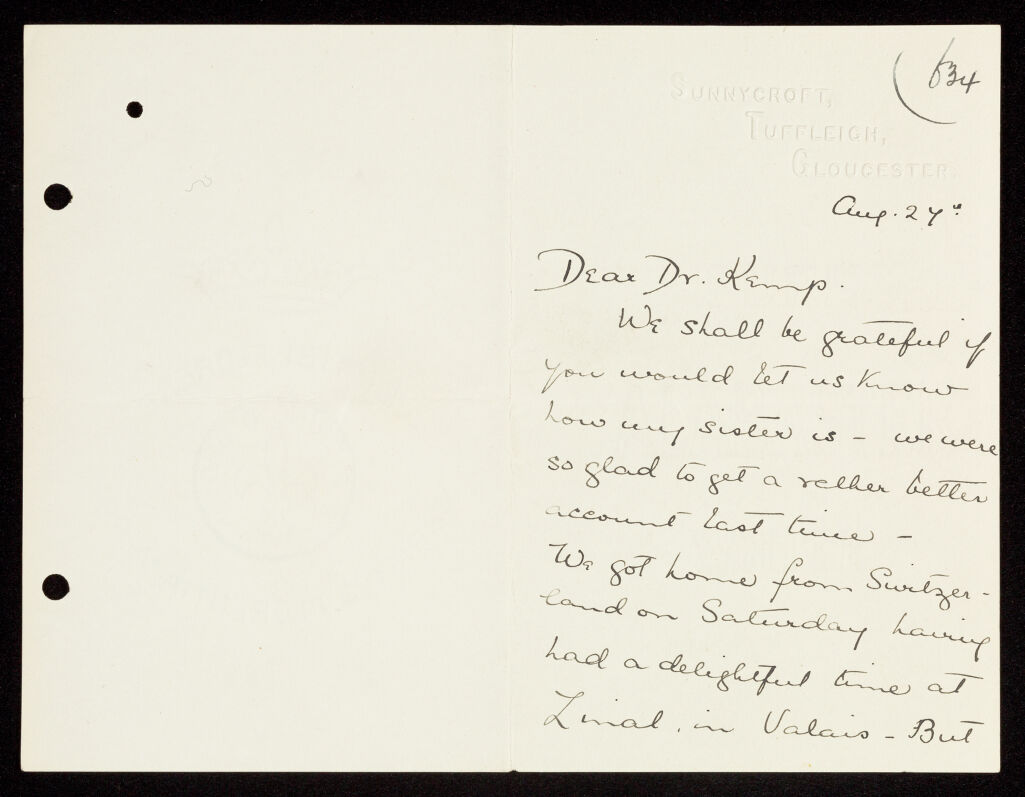 634
SUNNYCROFT,
TUFFLEIGH,
GLOUCESTER.
Aug. 27th
Dear Dr. Kemp.
We shall be grateful if
you would let us know
how my sister is – we were
so glad to get a rather better
account last time –
We got home from Switzer-
land on Saturday having
had a delightful time at
Zinal, in Valais – But